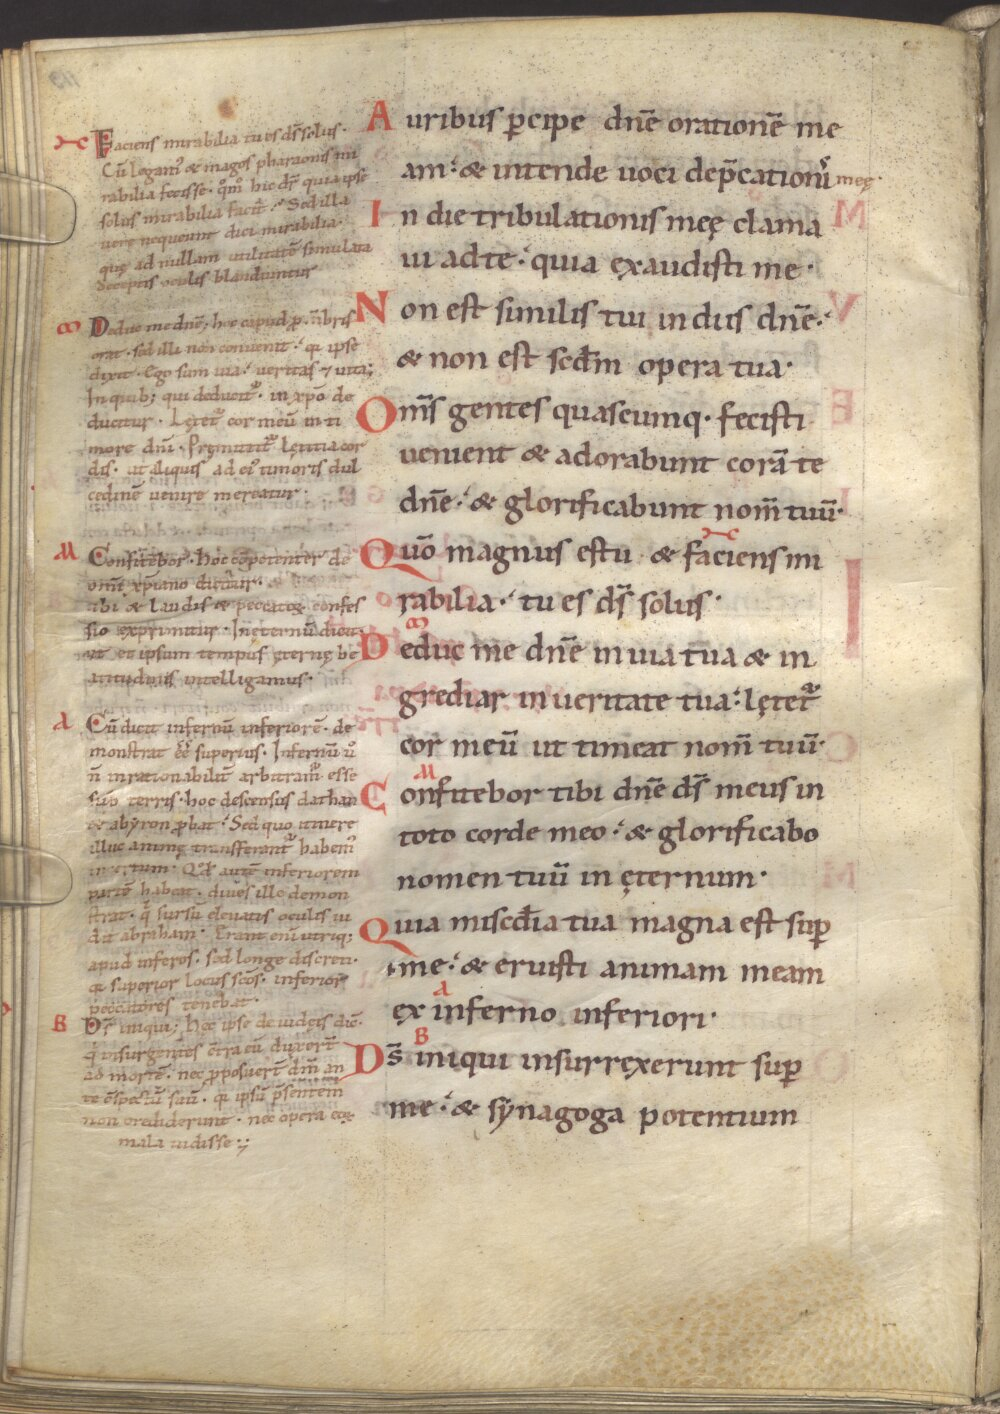 Faciens mirabilia tu es ds̄ solus·
Cū legam᷒ & magos pharaonis mi
rabilia fecisse· qm̄ hic dr̄ quia ipse
solus mirabilia facit· Sed illa
uere nequeunt dici mirabilia·
quę ad nullam utilitatē simulata
deceptis oculis blandiuntur
Deduc me dn̄e; hoc capud p̄
orat· sed illi non conuenit· qi ipse
dixit· Ego sum uia· ueritas ⁊ uita;
In quib; qui deducit᷒· in xp̄o de
ducitur· Lętet᷒ cor meū in ti
more dn̄i· Pręmittit᷒ lętitia cor
dis· ut aliquis ad ei᷒ timoris dul
cedinē uenire mereatur·
Confitebor· hoc cōpetenter de
omī xp̄iano dicitur·
tibi & laudis & peccatoꝝ confes
sio exprimitur· In ęternū dicit·
ut et ipsum tempus ęternę be
atitudinis intelligamus·
Cū dicit infernū inferiorē· de
monstrat ēē superius· Infernū u᷒
n̄ inrationabilit̄ arbitram᷒ esse
sub terris· hoc descensus dathan
& abyron ꝓbat· Sed quo itinere
illuc animę transferant᷒ habem᷒
incertum· Qd̄ autē inferiorem
partē habeat· diues ille demon
strat· qi sursū eleuatis oculis ui
dit abraham· Erant enī utriq;
apud inferos· sed longe discreti·
qi superior locus scōs· inferior
peccatores tenebat·
Ds̄ iniqui; hęc ipse de iudęis dic̄·
qi insurgentes cōtra eū duxer̄t
ad mortē· nec ꝓposuer̄t dm̄ an
te cōspectū suū· qi ipsū p̄sentem
non crediderunt· nec opera eoꝝ
mala uidisse·;
Auribus ꝑcipe dn̄e orationē me
am· & intende uoci dep̄cationis meę·
In die tribulationis meę clama
ui ad te· quia exaudisti me·
Non est similis tui in diis dn̄e·
& non est scd̄m opera tua·
Om̄s gentes quascumq· fecisti
uenient & adorabunt corā te
dn̄e· & glorificabunt nom̄ tuū·
Quō magnus es tu & faciens mi
rabilia· tu es ds̄ solus·
Deduc me dn̄e in uia tua & in
grediar in ueritate tua· lętet᷒
cor meū ut timeat nom̄ tuū·
Confitebor tibi dn̄e ds̄ meus in
toto corde meo· & glorificabo
nomen tuū in ęternum·
Quia miscd̄ia tua magna est suꝑ
me· & eruisti animam meam
ex inferno inferiori·
Ds̄ iniqui insurrexerunt suꝑ
me· & synagoga potentium